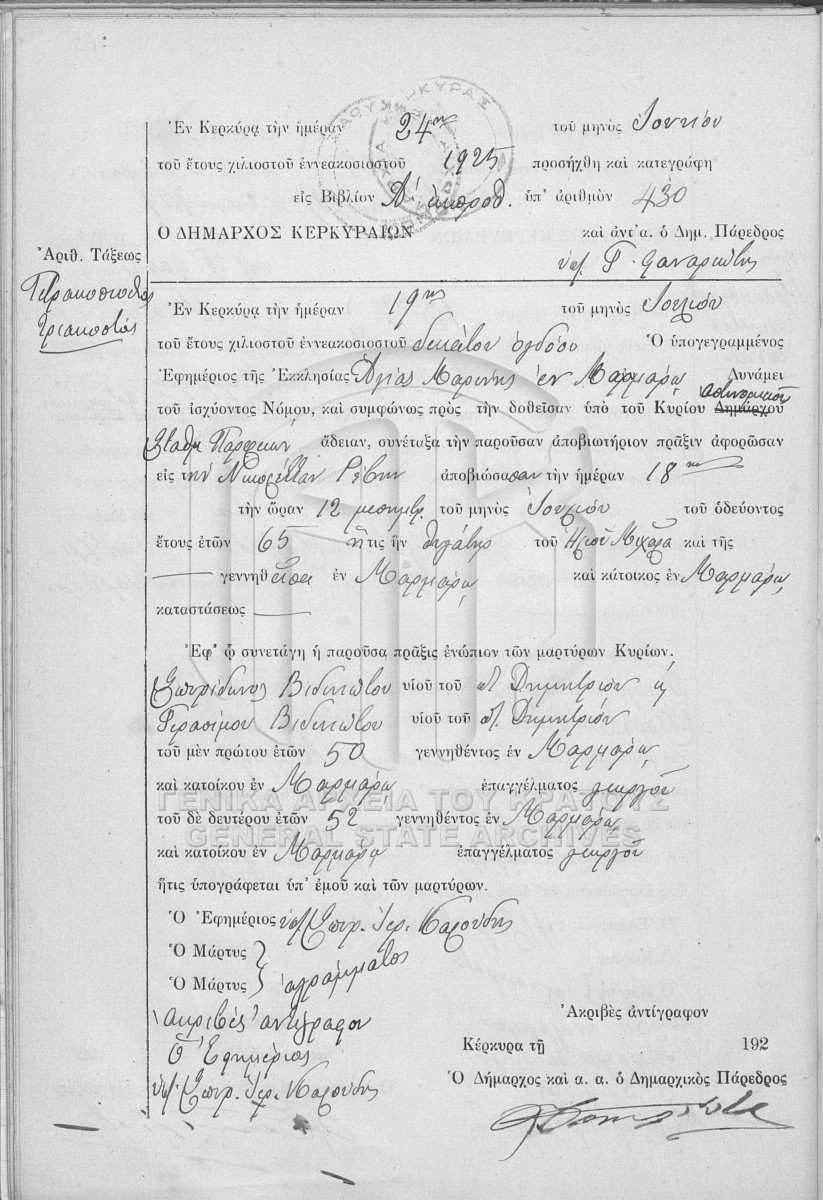 Ἐν Κερκύρᾳ τὴν ἡμέραν 24ην τοῦ μηνὸς Ἰουνίου
τοῦ ἔτους χιλιοστοῦ ἐννεακοσιοστοῦ 1925 προσήχθη καὶ κατεγράφη
εἰς Βιβλίον Α' ὑπ' ἀριθμὸν 430
Ο ΔΗΜΑΡΧΟΣ ΚΕΡΚΥΡΑΙΩΝ καὶ ἀντ'α. ὁ Δημ. Πάρεδρος
Ἀριθ. Τάξεως
Τετρακοσιοστὸς
τριακοστός
Ἐν Κερκύρᾳ τὴν ἡμέραν 19ην τοῦ μηνὸς Ἰουλίου
τοῦ ἔτους χιλιοστοῦ ἐννεακοσιοστοῦ δεκάτου ὀγδόου Ὁ ὑπογεγραμμένος
Ἐφημέριος τῆς Ἐκκλησίας Ἁγίας Μαρίνης ἐν Μαρμάρῳ Δυνάμει
τοῦ ἰσχύοντος Νόμου, καὶ συμφώνως πρὸς τὴν δοθεῖσαν ὑπὸ τοῦ Κυρίου Δημάρχου
ἄδειαν, συνέταξα τὴν παροῦσαν ἀποβιωτήριον πρᾶξιν ἀφορῶσαν
εἰς τὴν ἀποβιώσασαν τὴν ἡμέραν 18ην
τὴν ὥραν 12 μεσημβρ. τοῦ μηνὸς Ἰουλίου τοῦ ὁδεύοντος
ἔτους ἐτῶν 65 ἥτις ἦν θυγάτηρ τοῦ καὶ τῆς
γεννηθεῖσα ἐν Μαρμάρῳ καὶ κάτοικος ἐν Μαρμάρῳ
καταστάσεως
Ἐφ' ᾧ συνετάγη ἡ παροῦσα πρᾶξις ἐνώπιον τῶν μαρτύρων Κυρίων.
Σπυρίδωνος Βιδινιώτου υἱοῦ τοῦ Δημητρίου
Γερασίμου Βιδινιώτου υἱοῦ τοῦ Δημητρίου
τοῦ μὲν πρώτου ἐτῶν 50 γεννηθέντος ἐν Μαρμάρῳ
καὶ κατοίκου ἐν Μαρμάρῳ ἐπαγγέλματος γεωργοῦ
ΓΕΝΙΚΑ ΑΡΧΕΙΑ ΤΟΥ ΚΡΑΤΟΥΣ
τοῦ δὲ δευτέρου ἐτῶν 52 γεννηθέντος ἐν Μαρμάρῳ
GENERAL STATE ARCHIVES
καὶ κατοίκου ἐν Μαρμάρῳ ἐπαγγέλματος γεωργοῦ
ἥτις ὑπογράφεται ὑπ' ἐμοῦ καὶ τῶν μαρτύρων.
Ὁ Ἐφημέριος Σπυρ. Ἱερ.
Ὁ Μάρτυς
Ὁ Μάρτυς ἀγράμματος
Ἀκριβὲς ἀντίγραφον
Ὁ Ἐφημέριος
Σπυρ. Ἱερ.
Ἀκριβὲς ἀντίγραφον
Κέρκυρα τῇ 192
Ὁ Δήμαρχος καὶ α. α. ὁ Δημαρχικὸς Πάρεδρος